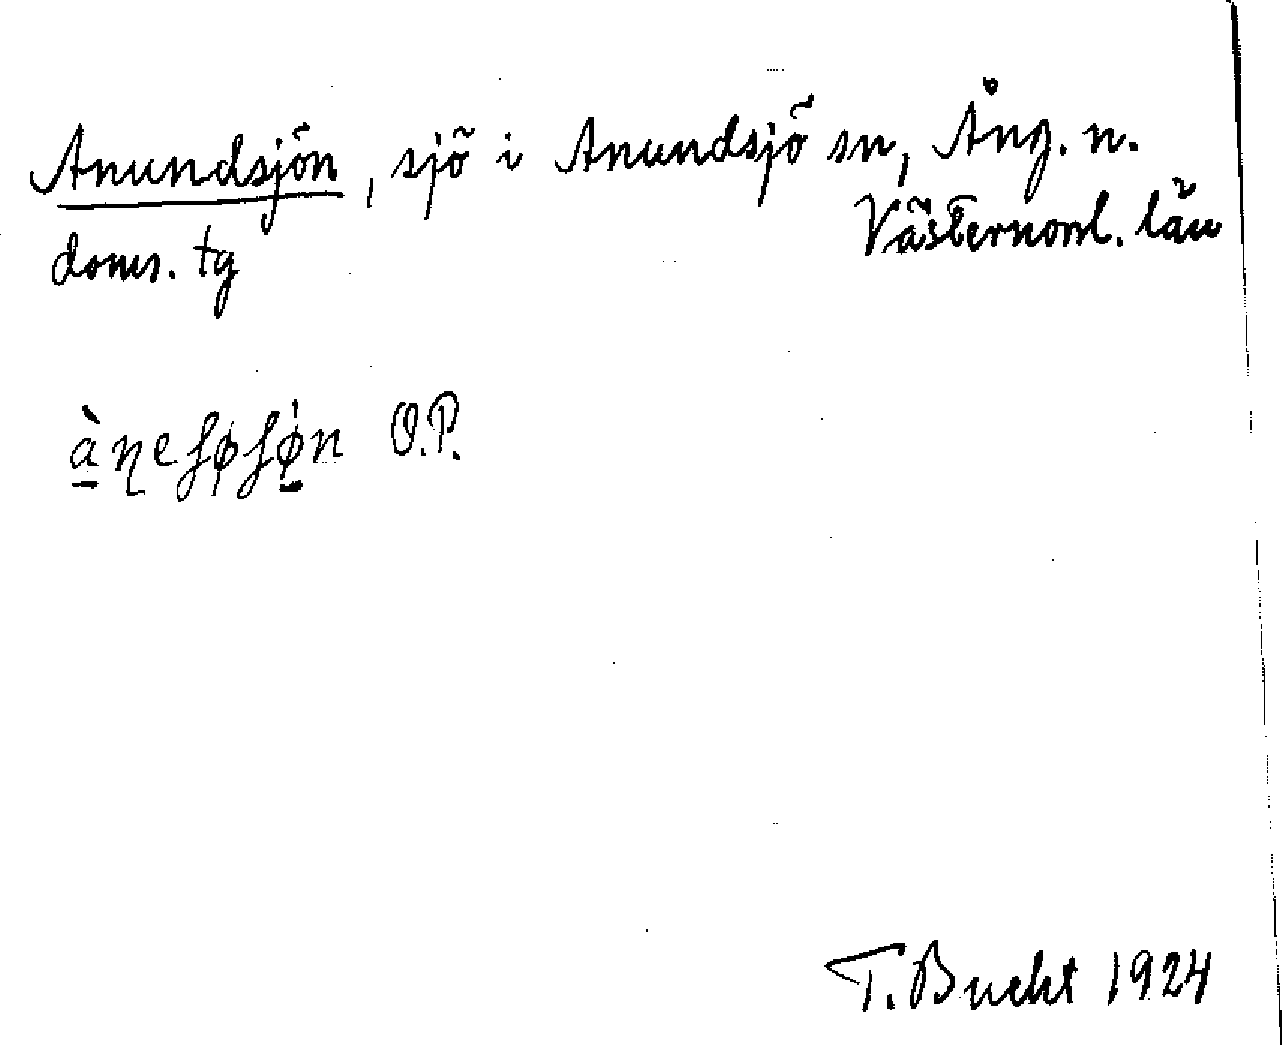 Anundsjön, sjö i Anundsjö sn, Ång. n.
doms. tg Västernorrl. län
O.P.
T. Bucht 1924